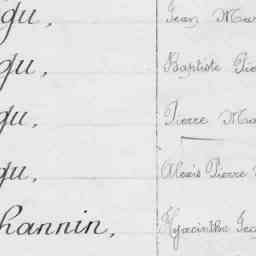 gu, Jean Mar
gu, Baptiste Pie
gu, Pierre Ma
gu, Alexis Pierre
hannin, Hyacinthe Jea